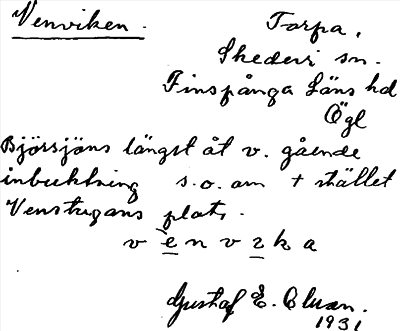 Venviken. Torpa,
Skedevi sn.
Finspånga Läns hd
Ögl
Björsjöns längst åt v. gående
inbuktning s.o. om + stället
Venstugans plats.
v e n v ı k a
Gustaf E.
1931